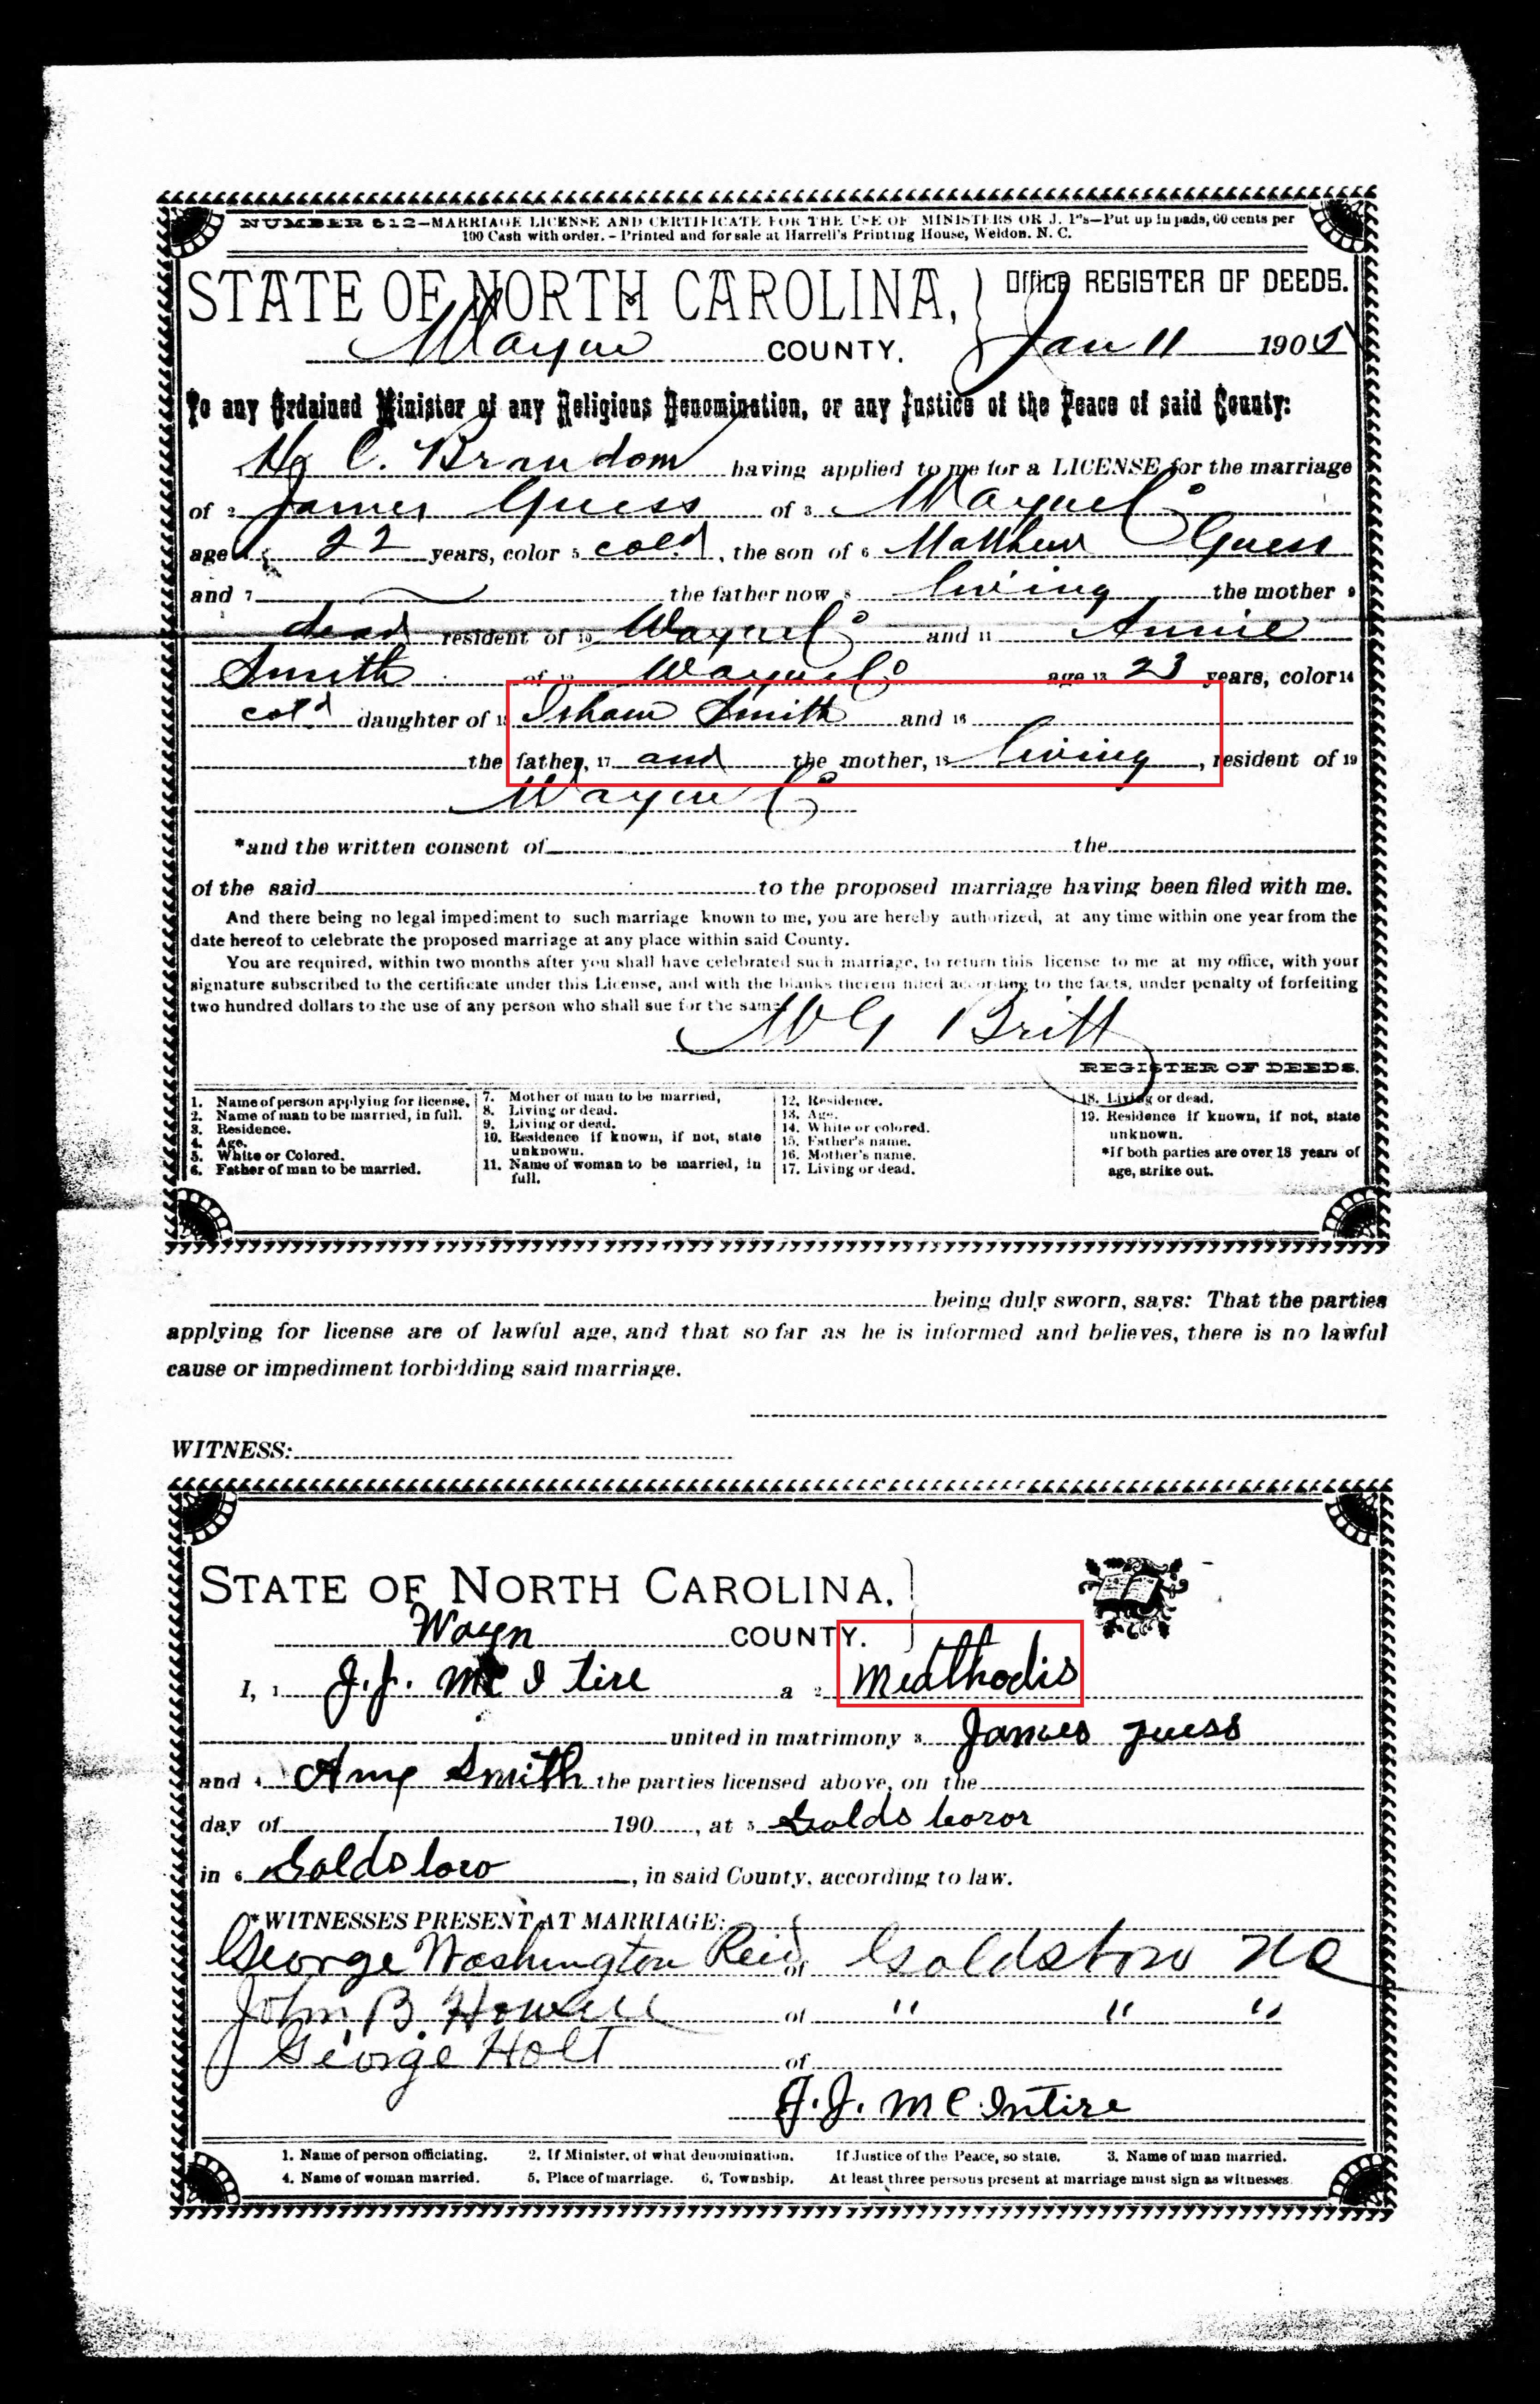 NUMBER 612—MARRIAGE LICENSE AND CERTIFICATE FOR THE USE OF MINISTERS OR J. P's—Put up in pads, 60 cents per
100 Cash with order. - Printed and for sale at Harrell's Printing House, Weldon. N. C.
STATE OF NORTH CAROLINA, Office REGISTER OF DEEDS.
Wayne COUNTY. Jan 11 190
To any Ordained Minister of any Religious Denomination, or any Justice of the Peace of said County:
C. Brandom having applied to me for a LICENSE for the marriage
of 2 James Guess of 3 Wayne Co
age 4 22 years, color 5 cold, the son of 6 Matthew Guess
and 7 the father now 8 living the mother 9
dead resident of 10 Wayne Co and 11 Annie
Smith of 12 Wayne Co age 13 23 years, color 14
cold daughter of 15 Isham Smith and 16
the father, 17 and the mother, 18 living, resident of 19
Wayne Co
*and the written consent of the
of the said to the proposed marriage having been filed with me.
And there being no legal impediment to such marriage known to me, you are hereby authorized, at any time within one year from the
date hereof to celebrate the proposed marriage at any place within said County.
You are required, within two months after you shall have celebrated such marriage, to return this license to me at my office, with your
signature subscribed to the certificate under this License, and with the blanks therein filled according to the facts, under penalty of forfeiting
two hundred dollars to the use of any person who shall sue for the same
W G Britt
REGISTER OF DEEDS.
1. Name of person applying for license.
2. Name of man to be married, in full.
3. Residence.
4. Age.
5. White or Colored.
6. Father of man to be married.
7. Mother of man to be married,
8. Living or dead.
9. Living or dead.
10. Residence if known, if not, state
unknown.
11. Name of woman to be married, in
full.
12. Residence.
13. Age.
14. White or colored.
15. Father's name.
16. Mother's name.
17. Living or dead.
18. Living or dead.
19. Residence if known, if not, state
unknown.
*If both parties are over 18 years of
age, strike out.
being duly sworn, says: That the parties
applying for license are of lawful age, and that so far as he is informed and believes, there is no lawful
cause or impediment forbidding said marriage.
WITNESS:
STATE OF NORTH CAROLINA,
Wayn COUNTY.
I, 1 J.J. Mc I tire a 2 Meathodis
united in matrimony 3 James guess
and 4 Amy Smith the parties licensed above, on the
day of 190 , at 5 Golds boror
in 6 Goldsboro, in said County, according to law.
*WITNESSES PRESENT AT MARRIAGE:
George Washington Reid of Goldsboro NC
John B. Howell of " " "
George Holt of
J.J. McIntire
1. Name of person officiating. 2. If Minister, of what denomination. If Justice of the Peace, so state. 3. Name of man married.
4. Name of woman married. 5. Place of marriage. 6. Township. At least three persons present at marriage must sign as witnesses.